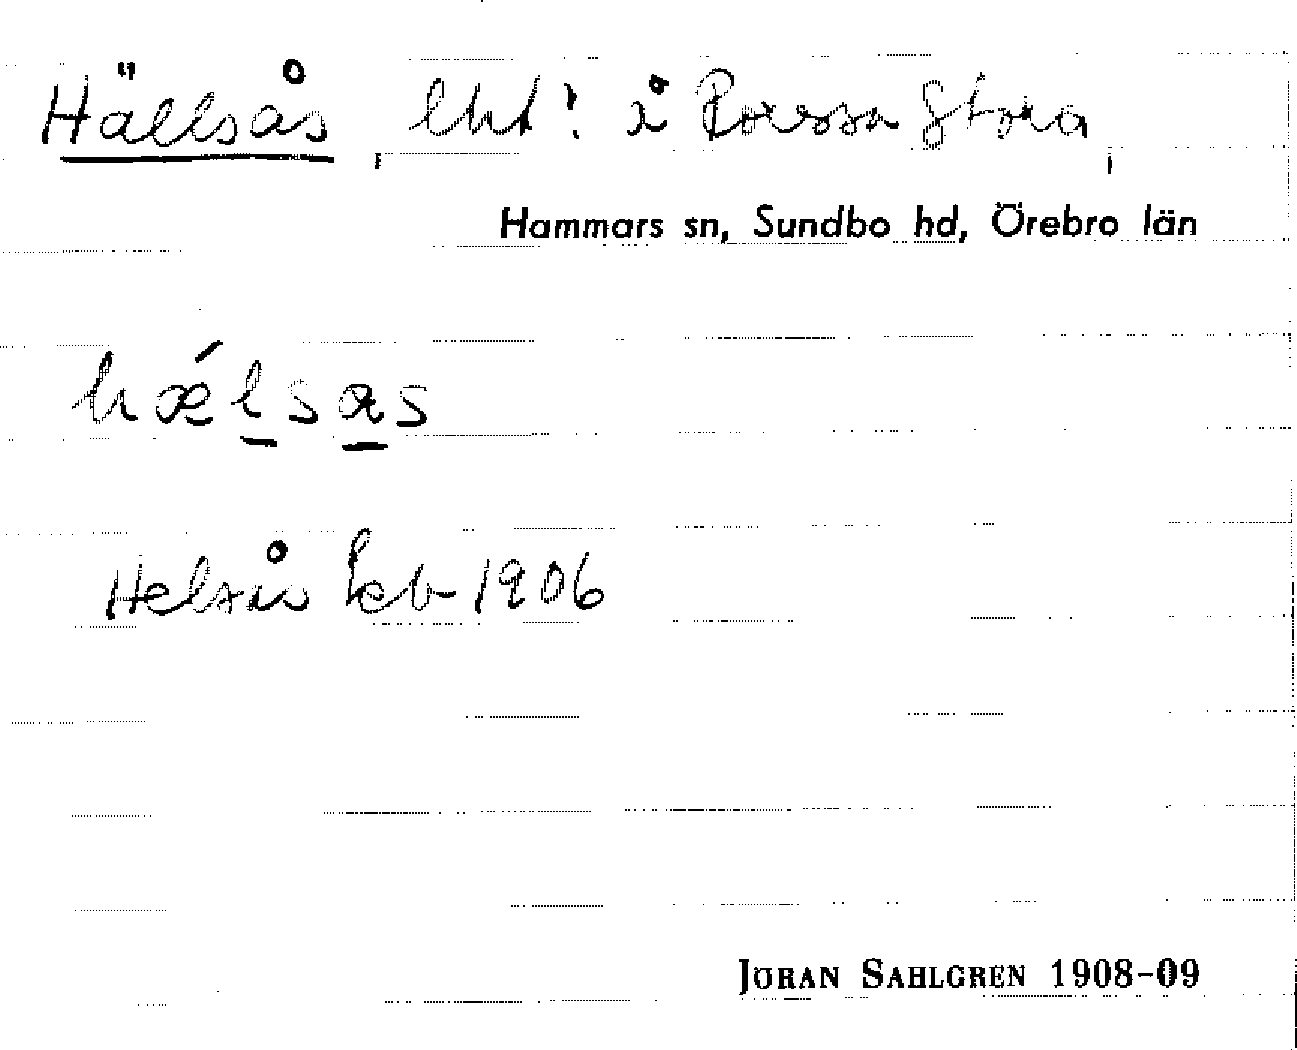 Hällsås, lht! å Roussa Stora,
Hammars sn, Sundbo hd, Örebro län
hǽlsas
Helsås kb 1906
JÖRAN SAHLGREN 1908-09